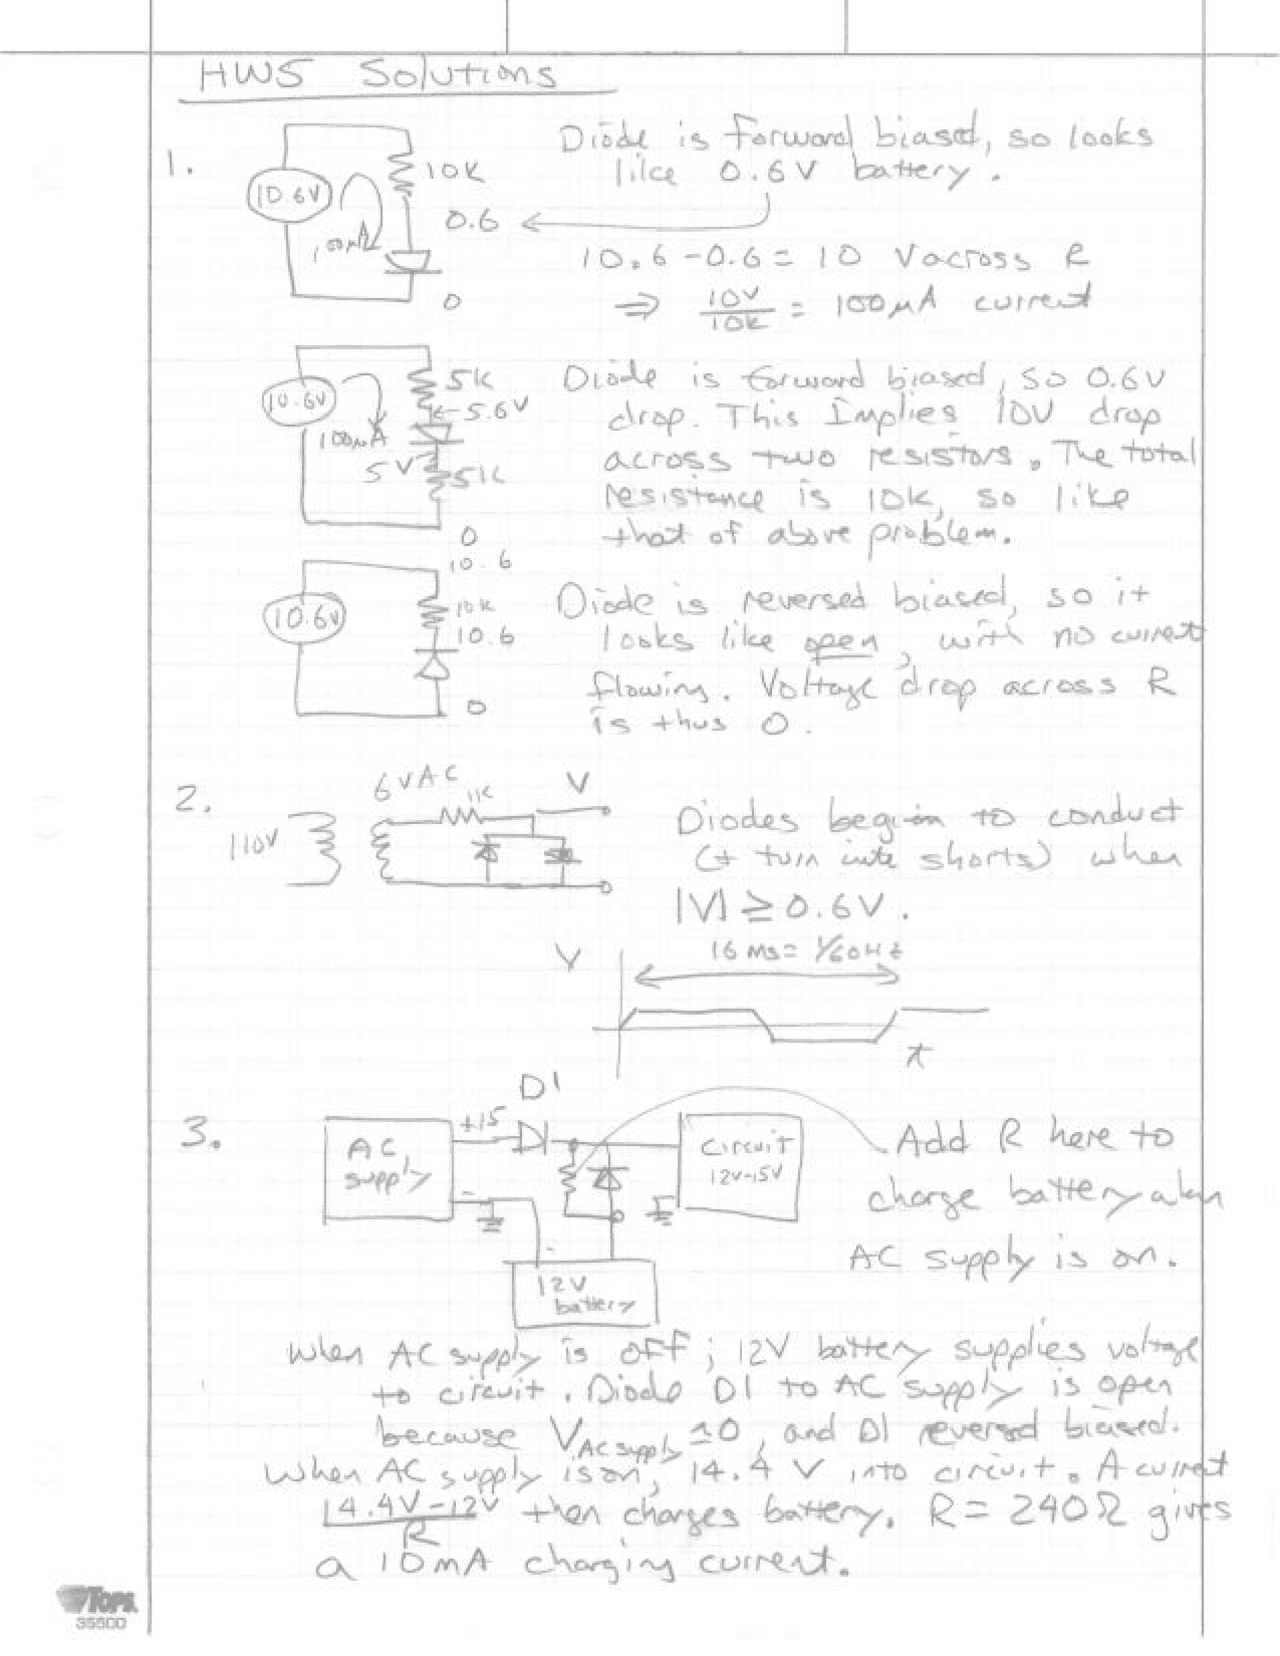 HW5 Solutions
1.
10.6V
10K
100μA
0.6
0
Diode is forward biased, so looks
like 0.6V battery.
10.6-0.6=10 V across R
⇒ 10V/10K = 100μA current
10.6V
5K
←5.6V
100μA
5V
5K
0
Diode is forward biased, so 0.6V
drop. This Implies 10V drop
across two resistors. The total
resistance is 10K, so like
that of above problem.
10.6
10.6V
10K
10.6
0
Diode is reversed biased, so it
looks like open, with no current
flowing. Voltage drop across R
is thus 0.
2.
110V
6VAC
1K
V
Diodes begin to conduct
(+ turn into shorts) when
|V| ≥ 0.6V.
V
16ms = 1/60Hz
t
3.
AC
supply
+15
-
D1
Circuit
12V-15V
-
12V
battery
Add R here to
charge battery when
AC supply is on.
When AC supply is off; 12V battery supplies voltage
to circuit. Diode D1 to AC supply is open
because VACsupply ≃0, and D1 reversed biased.
When AC supply is on, 14.4 V into circuit. A current
14.4V-12V/R then charges battery. R=240Ω gives
a 10mA charging current.
TOPS.
35500